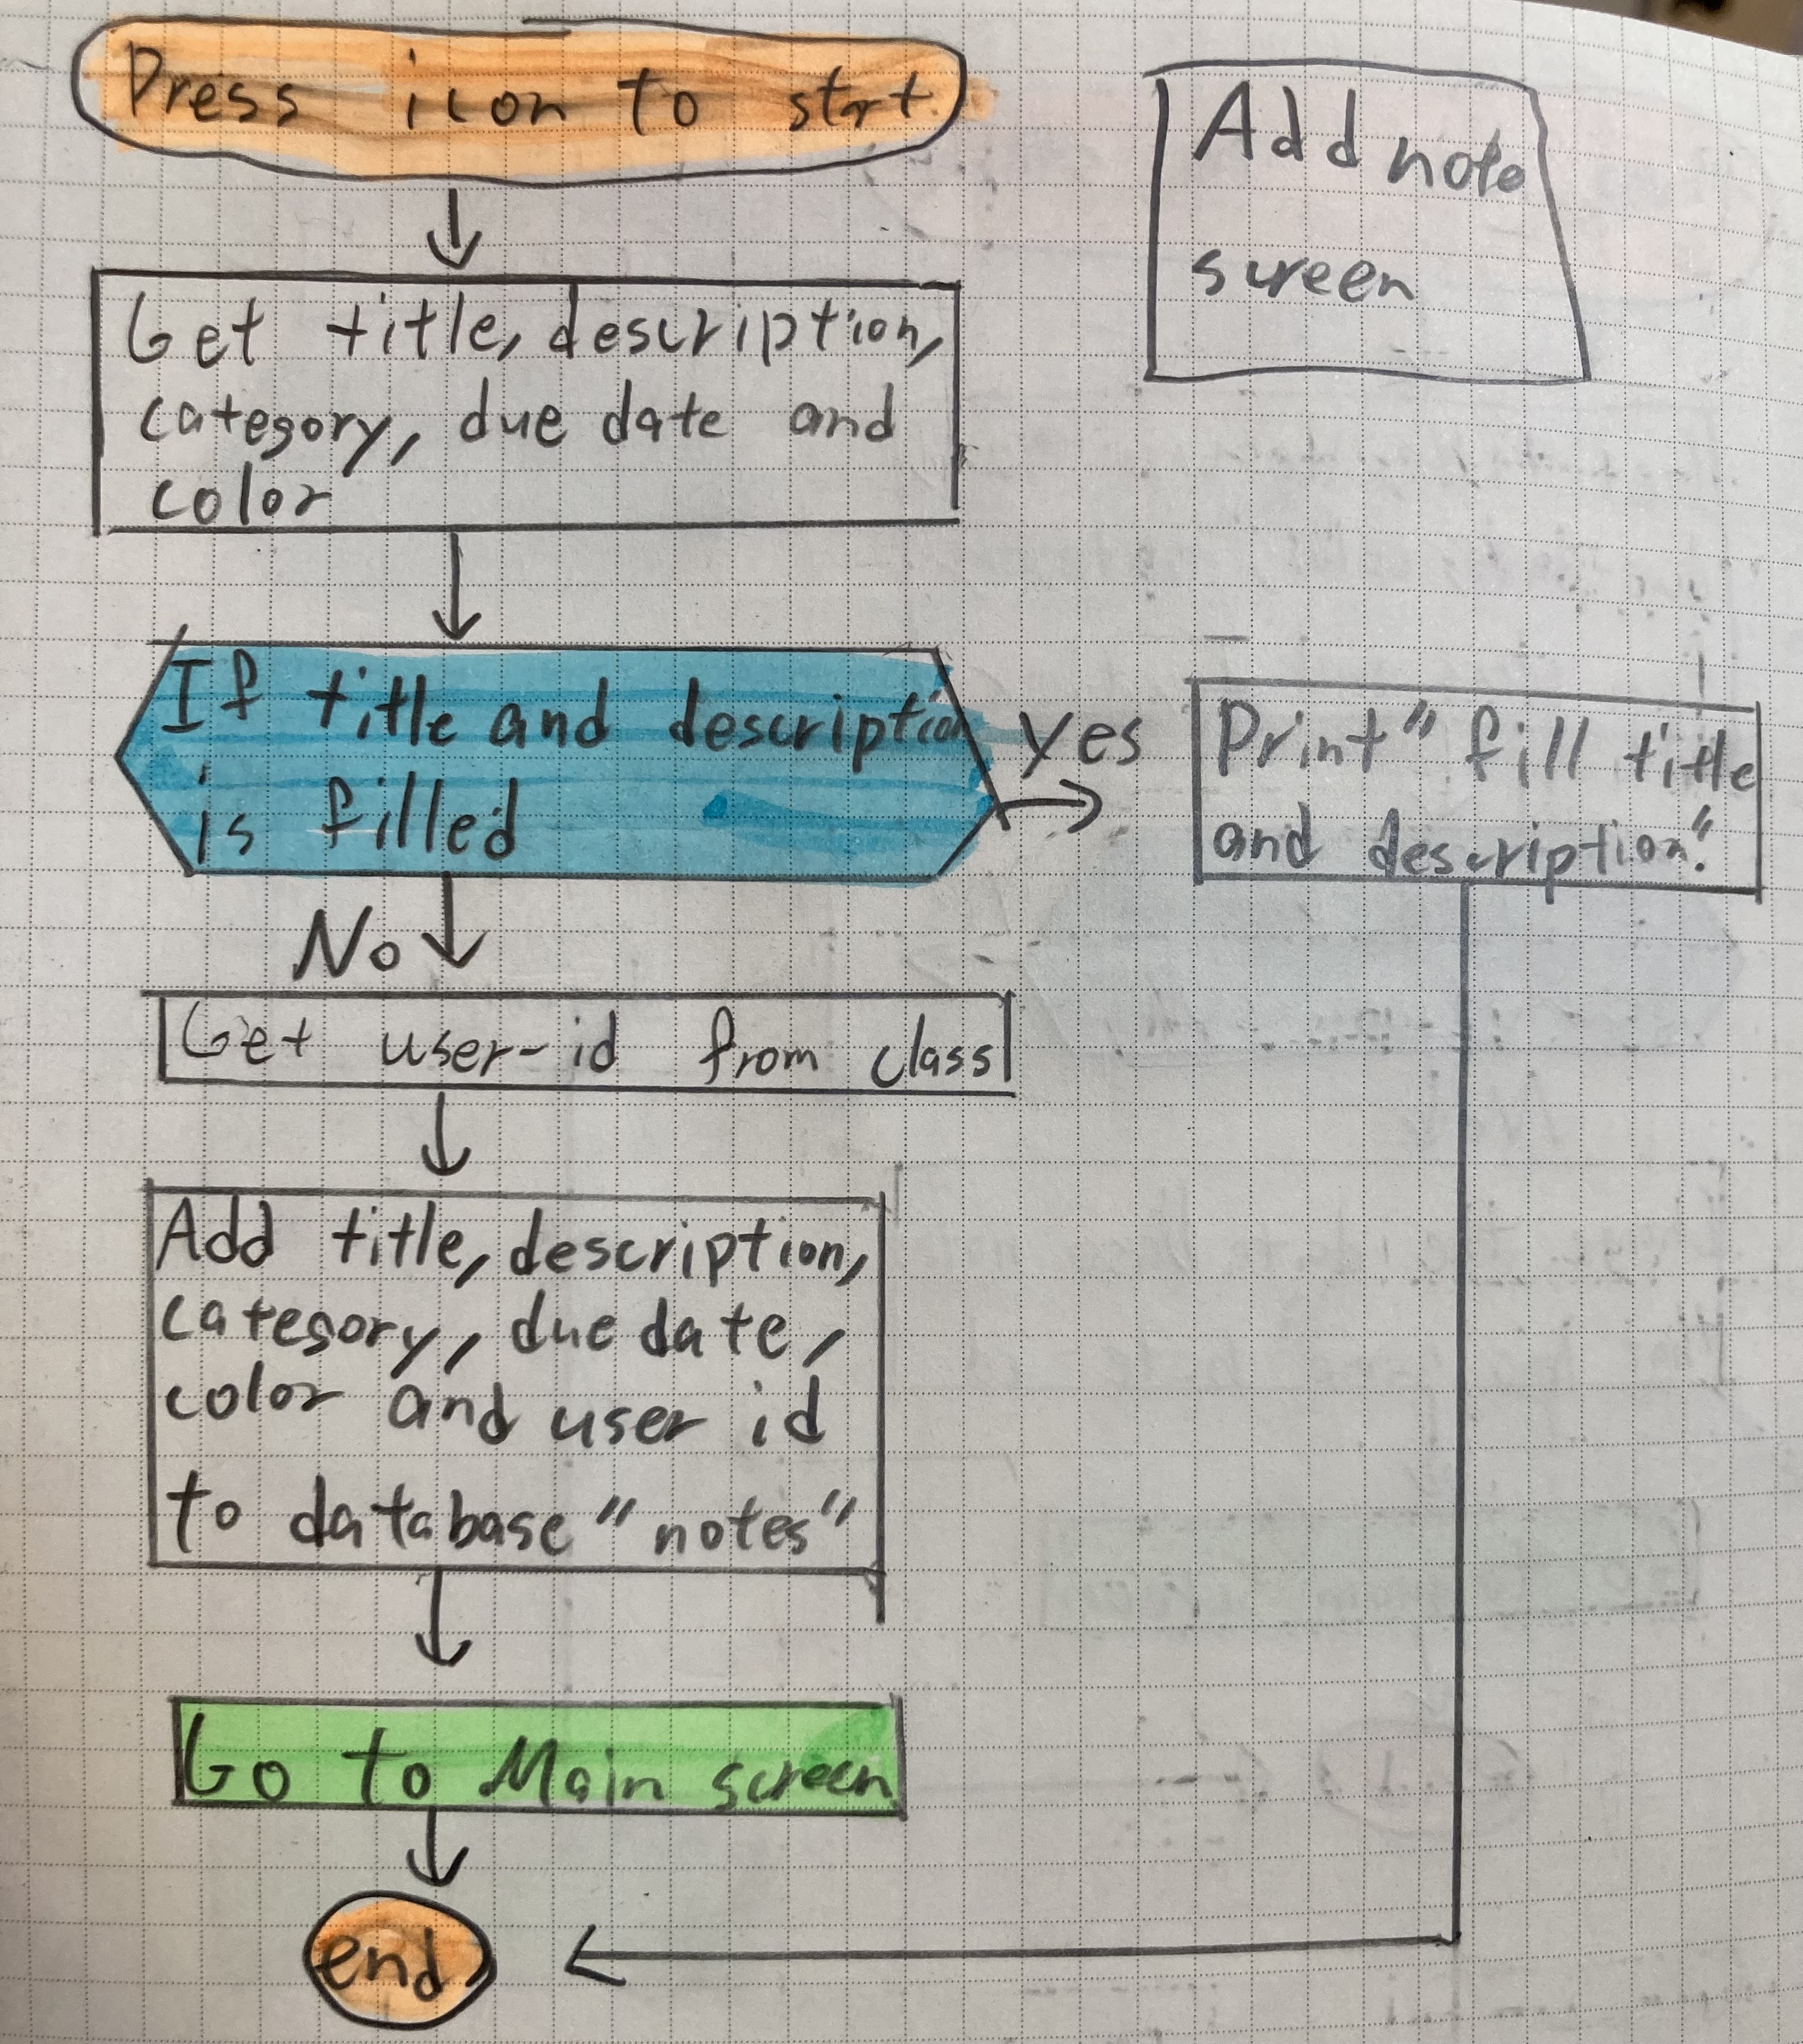 Press icon to start.
Add note
screen
Get title, description,
category, due date and
color
If title and description
is filled
Yes
Print "fill title
and description."
No
Get user-id from class
Add title, description,
category, due date,
color and user id
to database "notes"
Go to Main screen
end